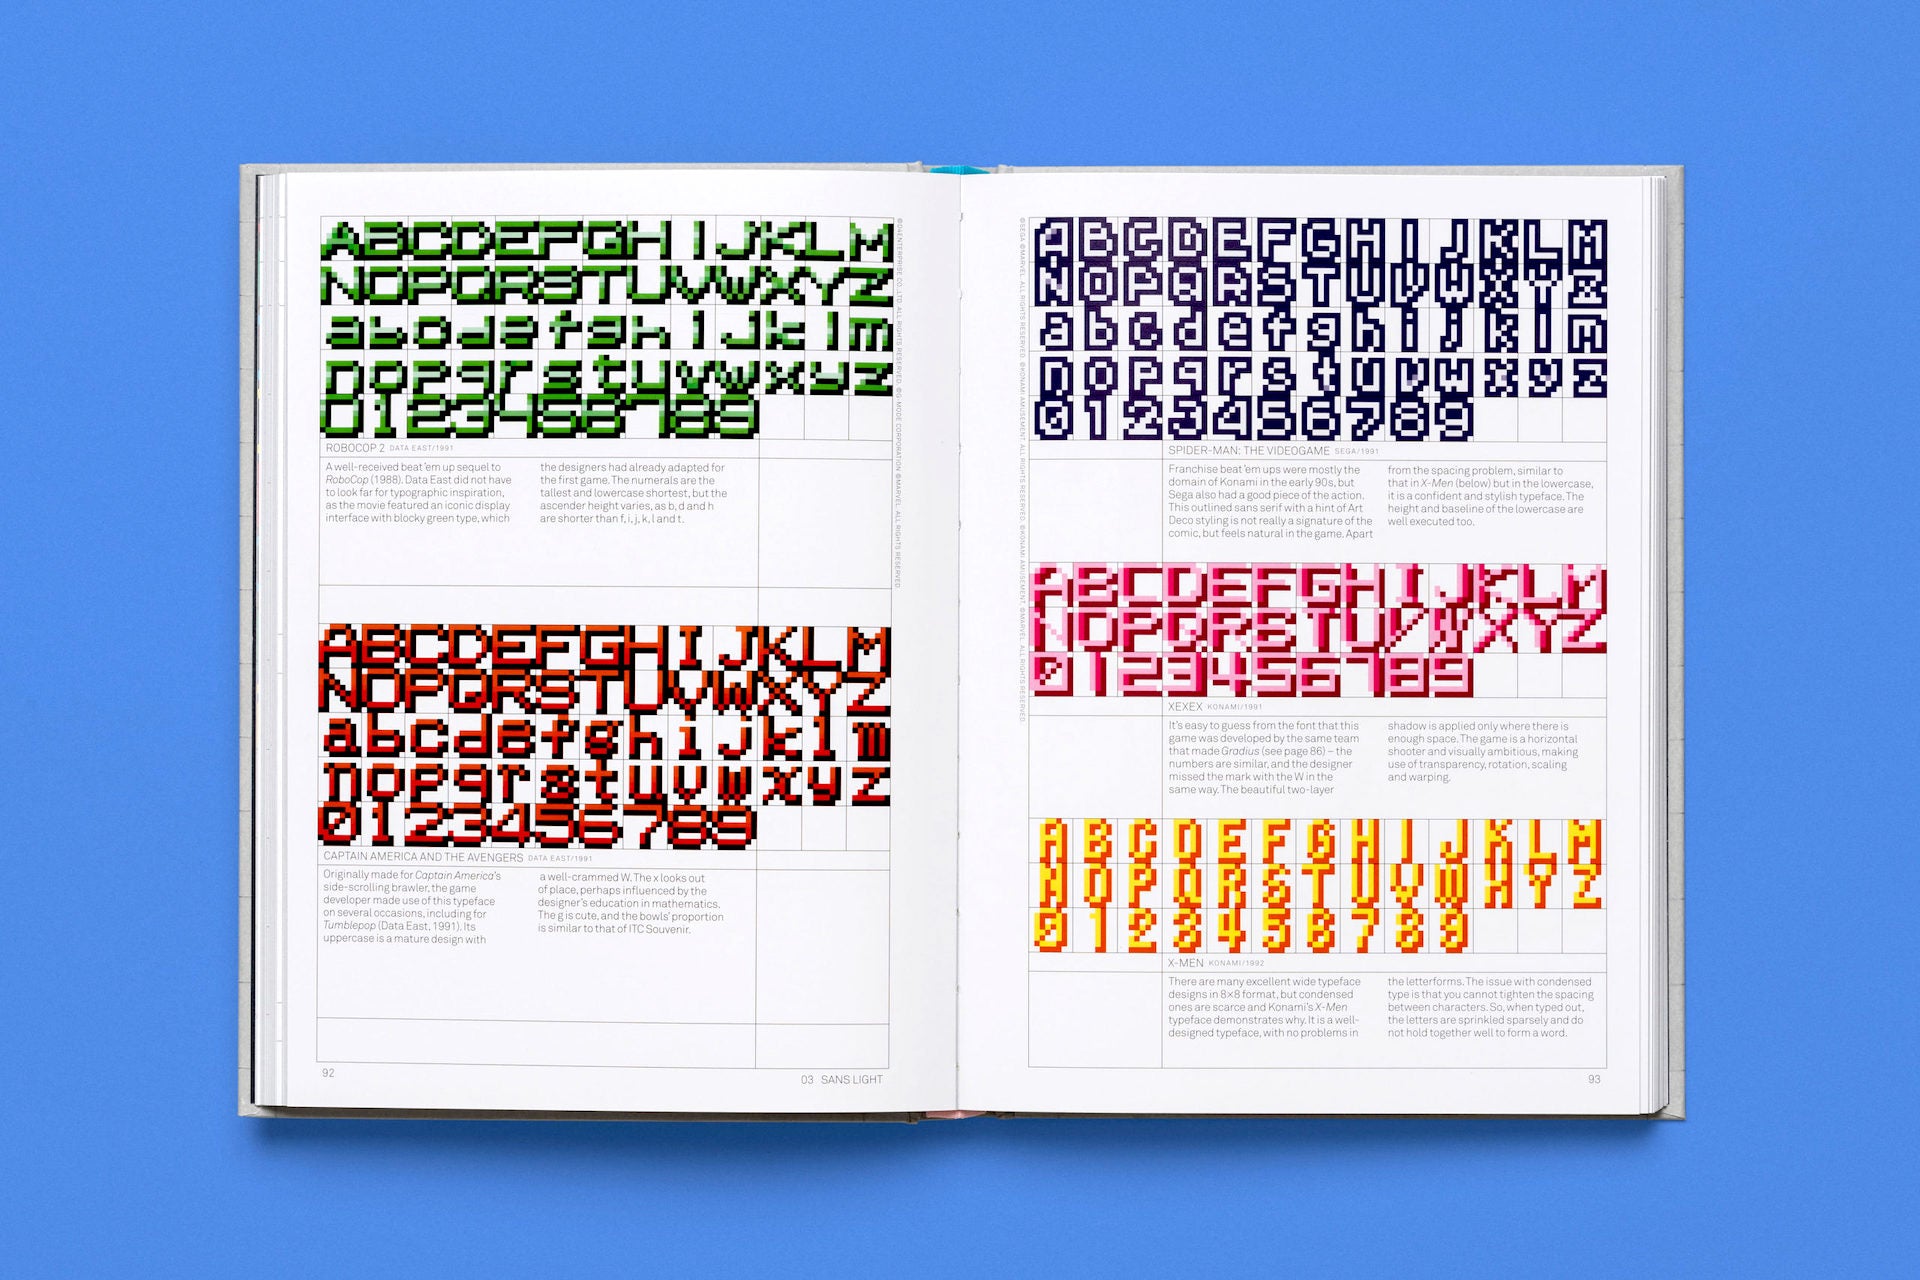 ABCDEFGHIJKLM
NOPQRSTUVWXYZ
abcdefghijklm
nopqrstuvwxyz
0123456789
ROBOCOP 2 DATA EAST/1991
A well-received beat 'em up sequel to
RoboCop (1988). Data East did not have
to look far for typographic inspiration,
as the movie featured an iconic display
interface with blocky green type, which
the designers had already adapted for
the first game. The numerals are the
tallest and lowercase shortest, but the
ascender height varies, as b, d and h
are shorter than f, i, j, k, l and t.
ABCDEFGHIJKLM
NOPQRSTUVWXYZ
abcdefghijklm
nopqrstuvwxyz
0123456789
CAPTAIN AMERICA AND THE AVENGERS DATA EAST/1991
Originally made for Captain America's
side-scrolling brawler, the game
developer made use of this typeface
on several occasions, including for
Tumblepop (Data East, 1991). Its
uppercase is a mature design with
a well-crammed W. The x looks out
of place, perhaps influenced by the
designer's education in mathematics.
The g is cute, and the bowls' proportion
is similar to that of ITC Souvenir.
92
03 SANS LIGHT
ABCDEFGHIJKLM
NOPQRSTUVWXYZ
abcdefghijklm
nopqrstuvwxyz
0123456789
SPIDER-MAN: THE VIDEOGAME SEGA/1991
Franchise beat 'em ups were mostly the
domain of Konami in the early 90s, but
Sega also had a good piece of the action.
This outlined sans serif with a hint of Art
Deco styling is not really a signature of the
comic, but feels natural in the game. Apart
from the spacing problem, similar to
that in X-Men (below) but in the lowercase,
it is a confident and stylish typeface. The
height and baseline of the lowercase are
well executed too.
ABCDEFGHIJKLM
NOPQRSTUVWXYZ
0123456789
XEXEX KONAMI/1991
It's easy to guess from the font that this
game was developed by the same team
that made Gradius (see page 86) – the
numbers are similar, and the designer
missed the mark with the W in the
same way. The beautiful two-layer
shadow is applied only where there is
enough space. The game is a horizontal
shooter and visually ambitious, making
use of transparency, rotation, scaling
and warping.
ABCDEFGHIJKLM
NOPQRSTUVWXYZ
0123456789
X-MEN KONAMI/1992
There are many excellent wide typeface
designs in 8×8 format, but condensed
ones are scarce and Konami's X-Men
typeface demonstrates why. It is a well-
designed typeface, with no problems in
the letterforms. The issue with condensed
type is that you cannot tighten the spacing
between characters. So, when typed out,
the letters are sprinkled sparsely and do
not hold together well to form a word.
93